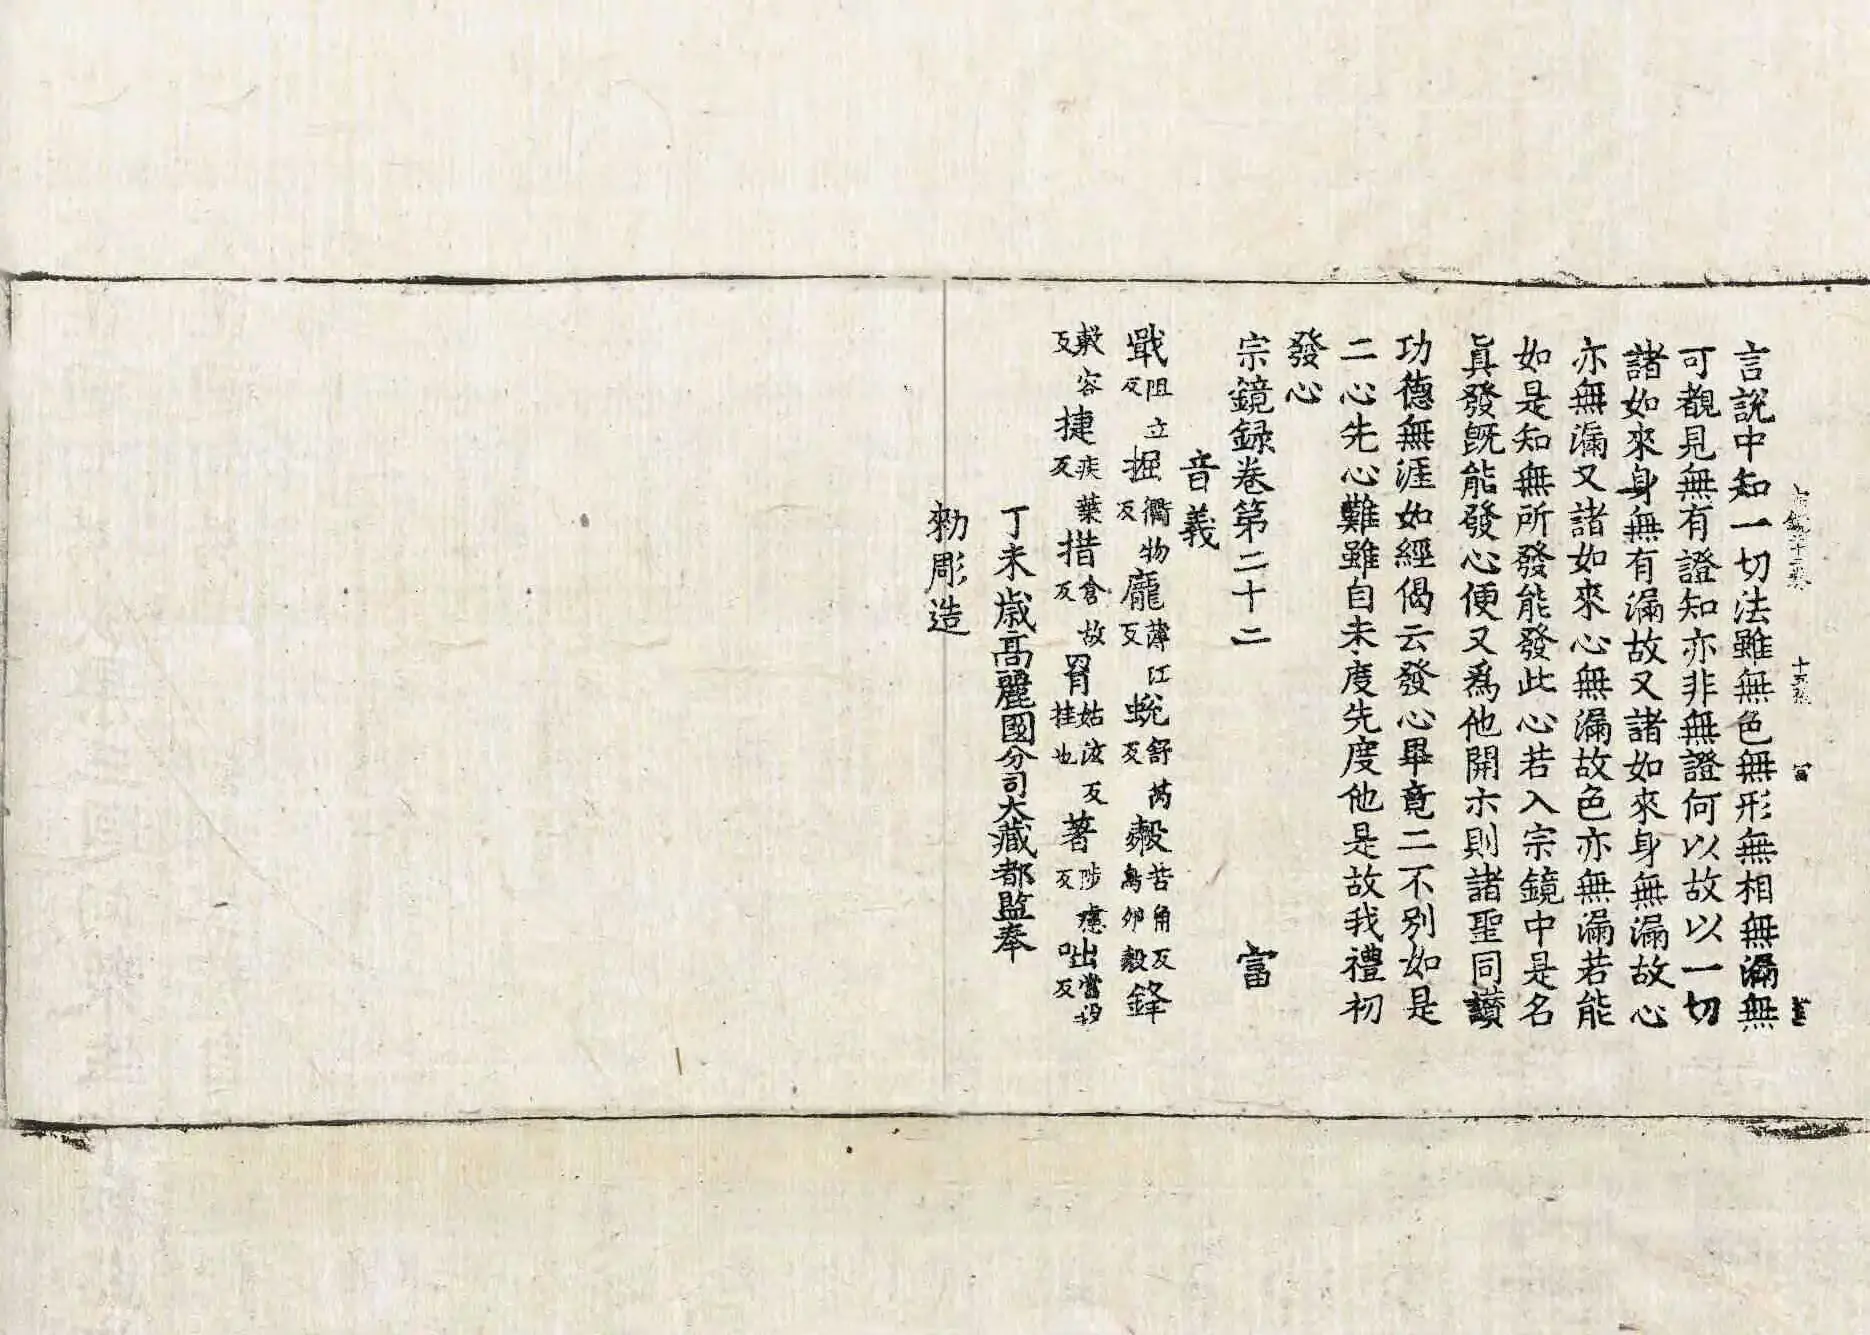 言說中知一切法雖無色無形無相無漏無
可覩見無有證知亦非無證何以故以一切
諸如來身無有漏故又諸如來身無漏故心
亦無漏又諸如來心無漏故色亦無漏若能
如是知無所發能發此心若入宗鏡中是名
眞發旣能發心便又爲他開示則諸聖同讃
功德無涯如經偈云發心畢竟二不別如是
二心先心難雖自未度先度他是故我禮初
發心
宗鏡録卷第二十二 富
音義
戢阻立反 掘衢物反 龐薄江反 蛻舒芮反 㲉苦角反鳥卵㲉 鋒
敷容反 捷疾葉反 措倉故反 罥姑泫反挂也 著陟慮反 咄當没反
丁未歲高麗國分司大藏都監奉
勑彫造